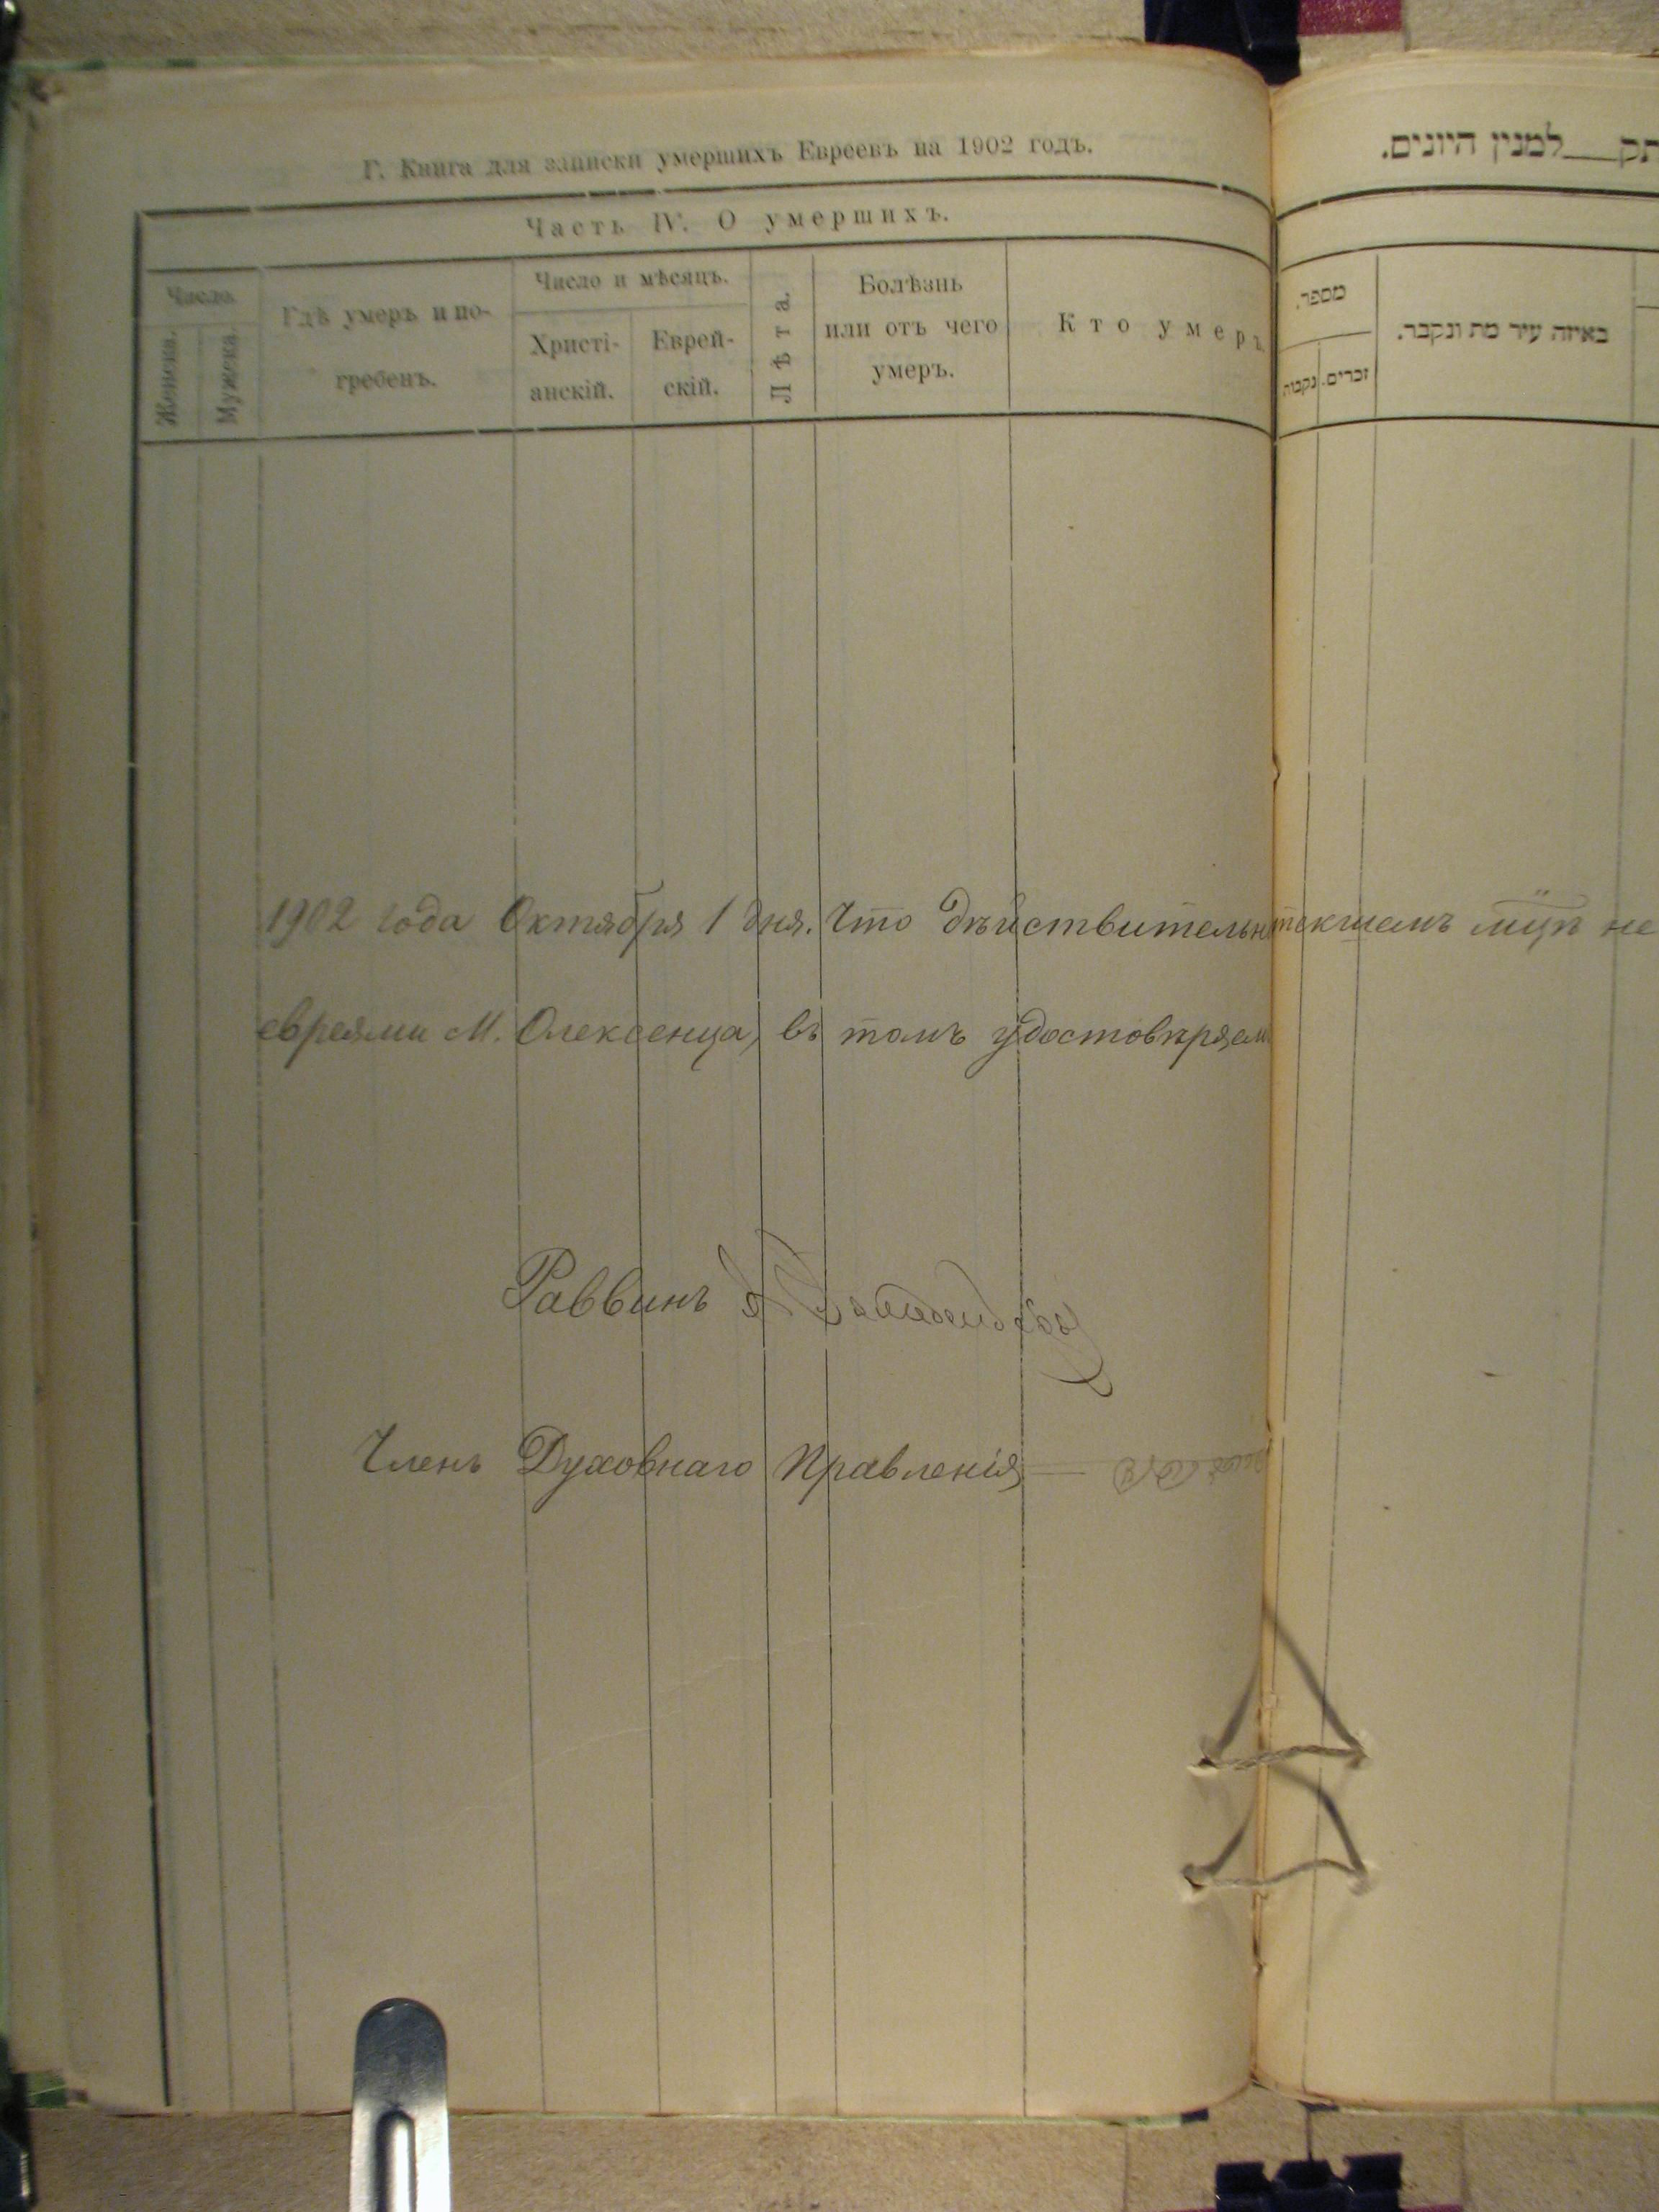 Г. Книга для записки умершихъ Евреевъ на 1902 годъ.
Часть IV. О умершихъ.
Число.
Женска.
Мужеска.
Гдѣ умеръ и по-
гребенъ.
Число и мѣсяцъ.
Христі-
анскій.
Еврей-
скій.
Лѣта.
Болѣзнь
или отъ чего
умеръ.
Кто умеръ
תק__למנין היונים.
מספר.
זכרים.
נקבות
באיזה עיר מת ונקבר.
1902 года Октября 1 дня. Что дѣйствительн текшемъ мцѣ не
евреями М. Олексенца, въ томъ удостовѣряем
Раввинъ
Членъ Духовнаго Правленія —